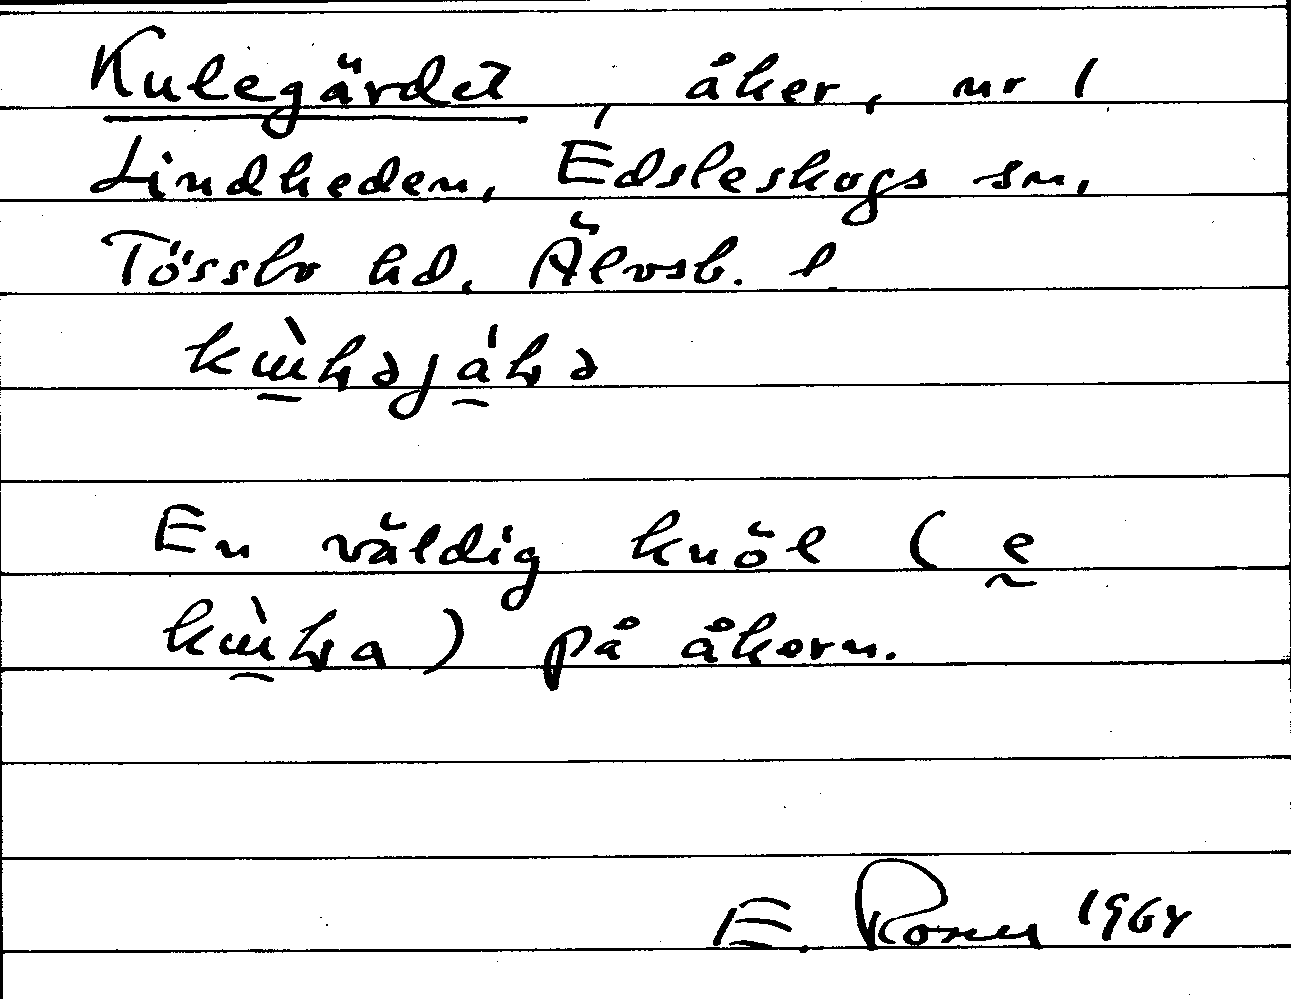 Kulegärdet, åker, nr 1
Lindheden, Edsleskogs sn,
Tössbo hd. Älvsb. l
En väldig knöl (e
) på åkern.
E. 1964